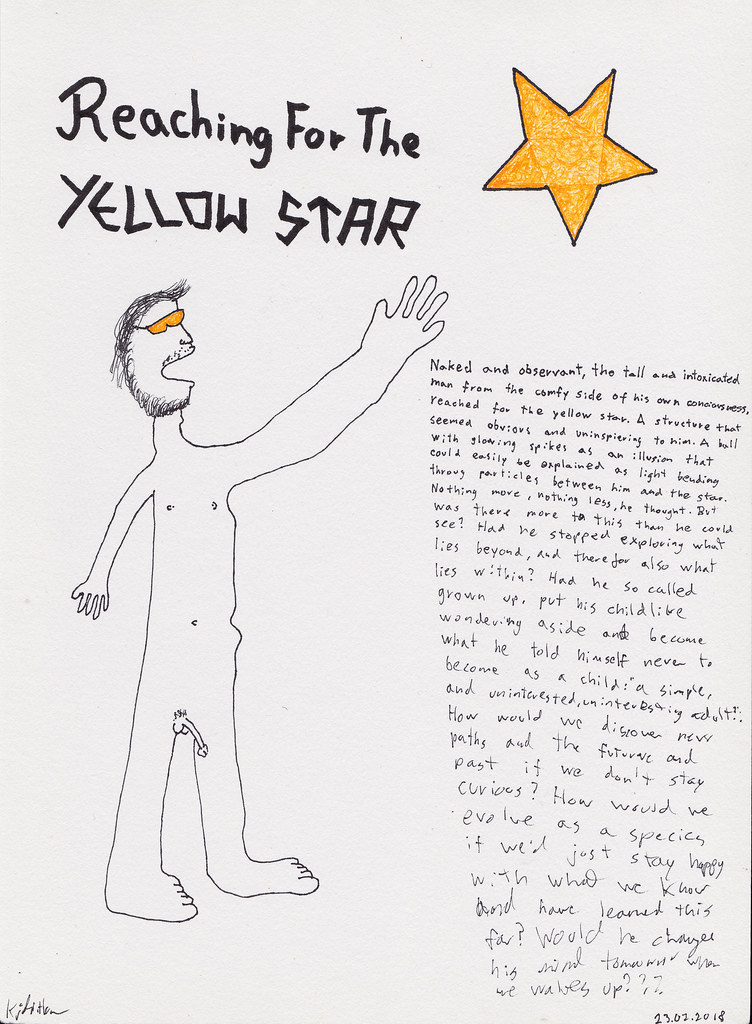 Reaching For The
YELLOW STAR
Naked and observant, the tall and intoxicated
man from the comfy side of his own conciousness,
reached for the yellow star. A structure that
seemed obvious and uninspiering to him. A ball
with glowing spikes as an illusion that
could easily be explained as light bending
throug particles between him and the star.
Nothing more, nothing less, he thought. But
was there more to this than he could
see? Had he stopped exploring what
lies beyond, and therefor also what
lies within? Had he so called
grown up, put his childlike
wondering aside and become
what he told himself never to
become as a child: "a simple,
and uninterested, uninteresting adult"?
How would we discover new
paths and the future and
past if we don't stay
curious? How would we
evolve as a species
if we'd just stay happy
with what we know
and have learned this
far? Would he change
his mind tomorrow when
we wakes up???
23.02.2018